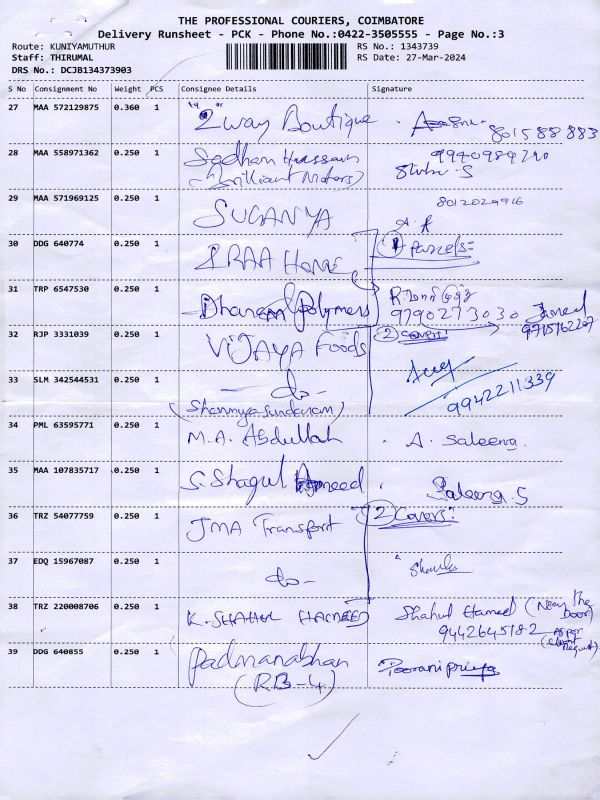 THE PROFESSIONAL COURIERS, COIMBATORE
Delivery Runsheet - PCK - Phone No.:0422-3505555 - Page No.:3
Route: KUNIYAMUTHUR RS No.: 1343739
Staff: THIRUMAL RS Date: 27-Mar-2024
DRS No.: DCJB134373903
S No Consignment No Weight PCS Consignee Details Signature
27 MAA 572129875 0.360 1 "2 way Boutique
8015 88 883
28 MAA 558971362 0.250 1 Hussain
(Brilliant Motors)
29 MAA 571969125 0.250 1 SUGANYA 8012029916
30 DDG 640774 0.250 1 IRAA Home Parcels:
31 TRP 6547530 0.250 1 Dharani Polymers 9790273030
32 RJP 3331039 0.250 1 VIJAYA Foods (2) covers:
33 SLM 342544531 0.250 1 - do - 9942211339
(Shanmyasundaram)
34 PML 63595771 0.250 1 M.A. Abdullah A. Saleena.
35 MAA 107835717 0.250 1 S. Shagul Hameed Saleena. S
36 TRZ 54077759 0.250 1 JMA Transport (2) Covers:
37 EDQ 15967087 0.250 1 - do -
38 TRZ 220008706 0.250 1 K. SHAHUL HAMEED Shahul Hameed (Near The Door)
9442645182 (As per client Request)
39 DDG 640855 0.250 1 Padmanabhan Poorani priya
(RB-4)